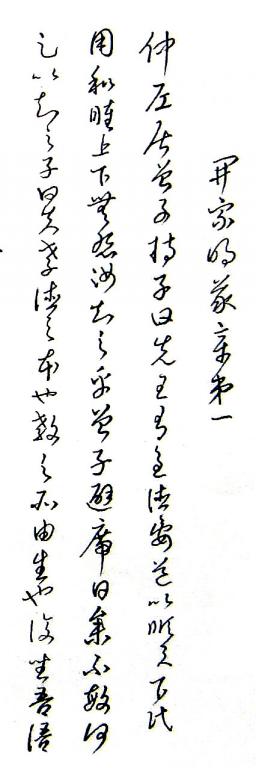 開宗明義章第一
仲尼居曾子侍子曰先王有至德要道以順天下民
用和睦上下無怨汝知之乎曾子避席曰參不敏何
足以知之子曰夫孝德之本也教之所由生也復坐吾語